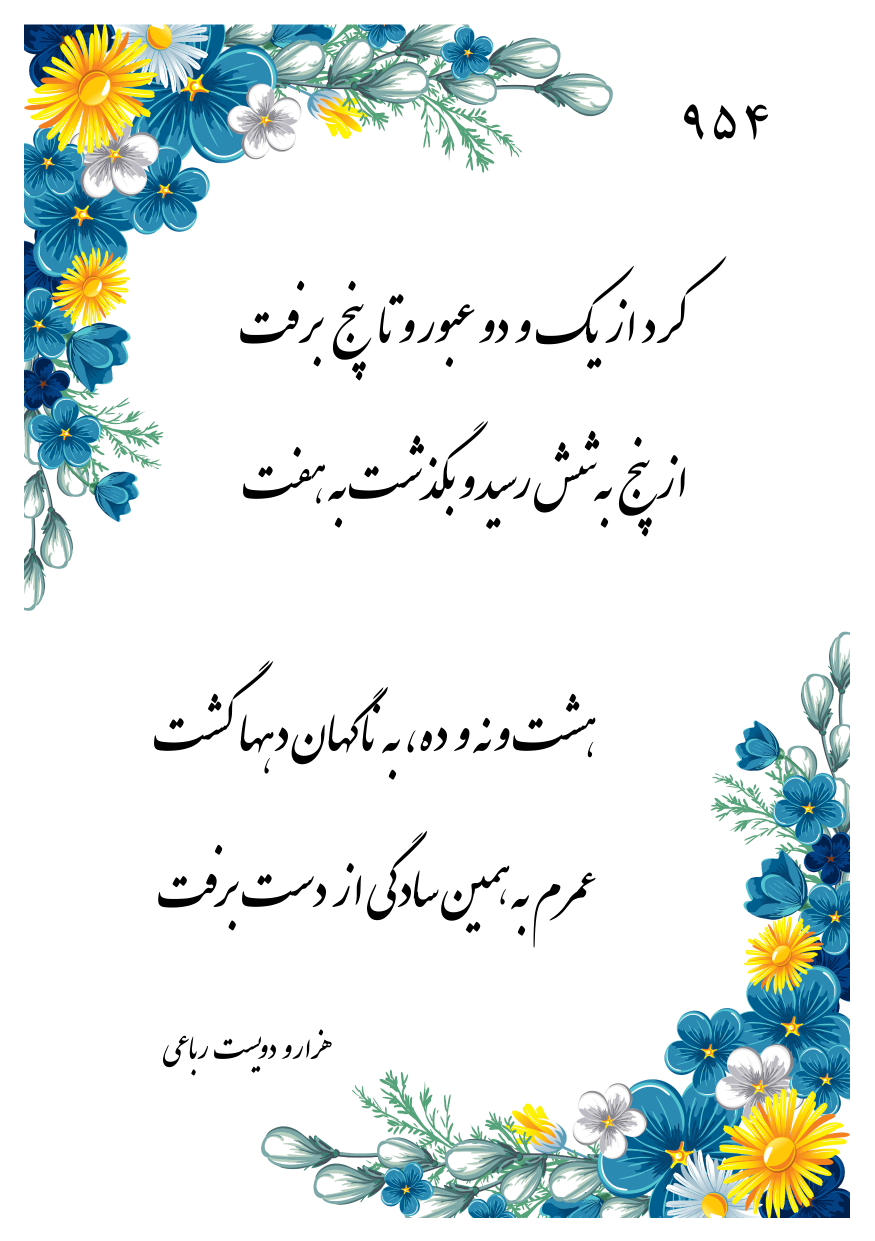 ۹۵۴
کرد از یک و دو عبور و تا پنج برفت
از پنج به شش رسید و بگذشت به هفت
هشت و نه و ده، به ناگهان دهها گشت
عمرم به همین سادگی از دست برفت
هزار و دویست رباعی